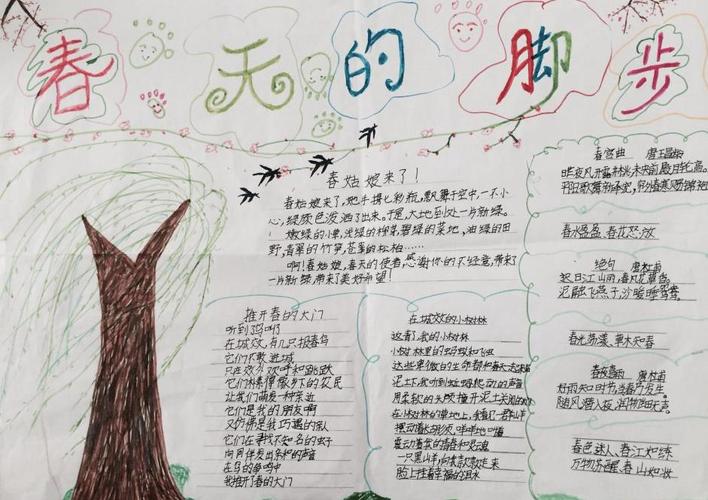 春天的脚步
春姑娘来了!
春姑娘来了,她手携七彩瓶,飘舞于空中,一不小
心,绿颜色泼洒了出来。于是,大地到处一片新绿。
嫩绿的小草,浅绿的柳芽,碧绿的菜地,油绿的田
野,青翠的竹笋,苍翠的松柏……
啊!春姑娘,春天的使者,感谢你的不经意,带来了
一片新绿,带来了美好希望!
推开春的大门
听到鸟啼
在城效,有几只报春鸟
它们不敢进城
只在效外欢呼和跳跃
它们
让我们萌发一种亲近
它们是我的朋友啊
又仿佛是我巧遇的亲人
它们在寻找不知名的虫子
向同伴发出亲和的声音
在鸟的争鸣中
我推开了春的大门
在城效的小树林
这有了我的小树林
小树林里的蚂蚁和飞虫
这些卑微的生命都和春天
泥土下,我听到蚯蚓爬动的声音
用柔软的头颅撞开泥土
在小树林的草地上,我看见一群山羊
摆动着长胡须,咩咩地叫着
震动着我的情春和灵魂
一只黑山羊,向默默走来
脸上挂着幸福的泪水
春宫曲 唐王昌龄
昨夜风开露井桃,未央前殿月轮高。
平阳歌舞新承宠,帘外春寒赐锦袍
春水盈盈,春花怒放
绝句 唐杜甫
迟日江山丽,春风花草香。
泥融飞燕子,沙暖睡鸳鸯。
春光荡漾,草木知春
春夜喜雨 唐杜甫
好雨知时节,当春乃发生。
随风潜入夜,润物细无声。
春色迷人,春江如练
万物苏醒,春山如妆